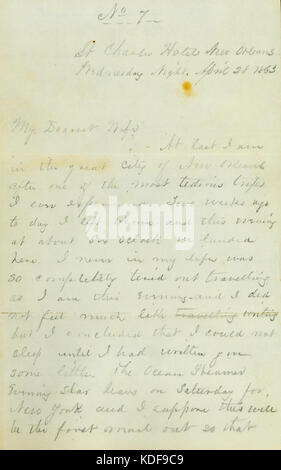 No 7
St Charles Hotel New Orleans
Wednesday Night. April 28 1863
My Dearest Wife
At last I am
in the great City of New Orleans
after one of the most tedious trips
I ever experienced. Two weeks ago
to day I left and this evening
at about six oclock we landed
here. I never in my life was
so completely tired out travelling
as I am this evening and I did
not feel much like travelling writing
but I concluded that I could not
sleep until I had written you
some little. The Ocean Steamer
Evening Star leaves on Saturday for
New York and I suppose this will
be the first mail out so that
alamy
Image ID: KDF9C9
www.alamy.com